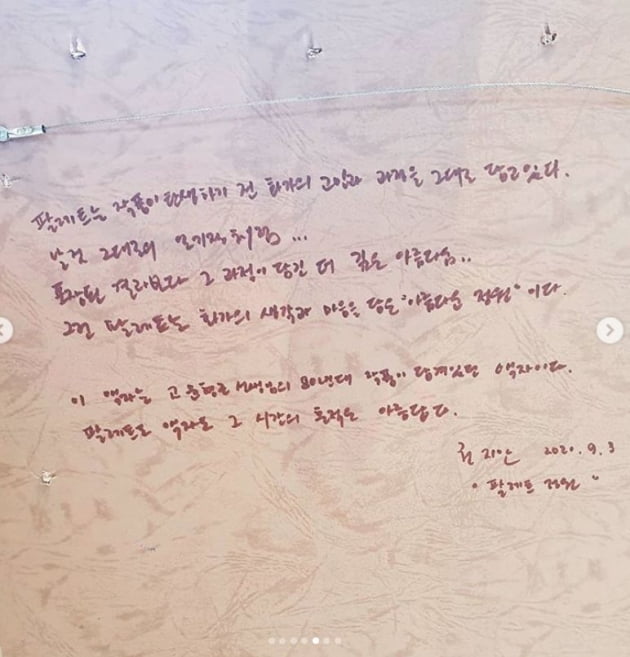 팔레트는 작품이 탄생하기 전 화가의 고민과 과정을 그대로 담고있다.
날것 그대로의 일기장처럼 ...
포장된 결과보다 그 과정이 담긴 더 깊은 아름다움..
그런 팔레트는 화가의 생각과 마음을 담은 "아름다운 정원" 이다.
이 액자는 고 윤형근 선생님의 80년대 작품이 담겨있던 액자이다.
팔레트도 액자도 그 시간의 흔적은 아름답다.
지안 2021.9.3
"팔레트 정원"